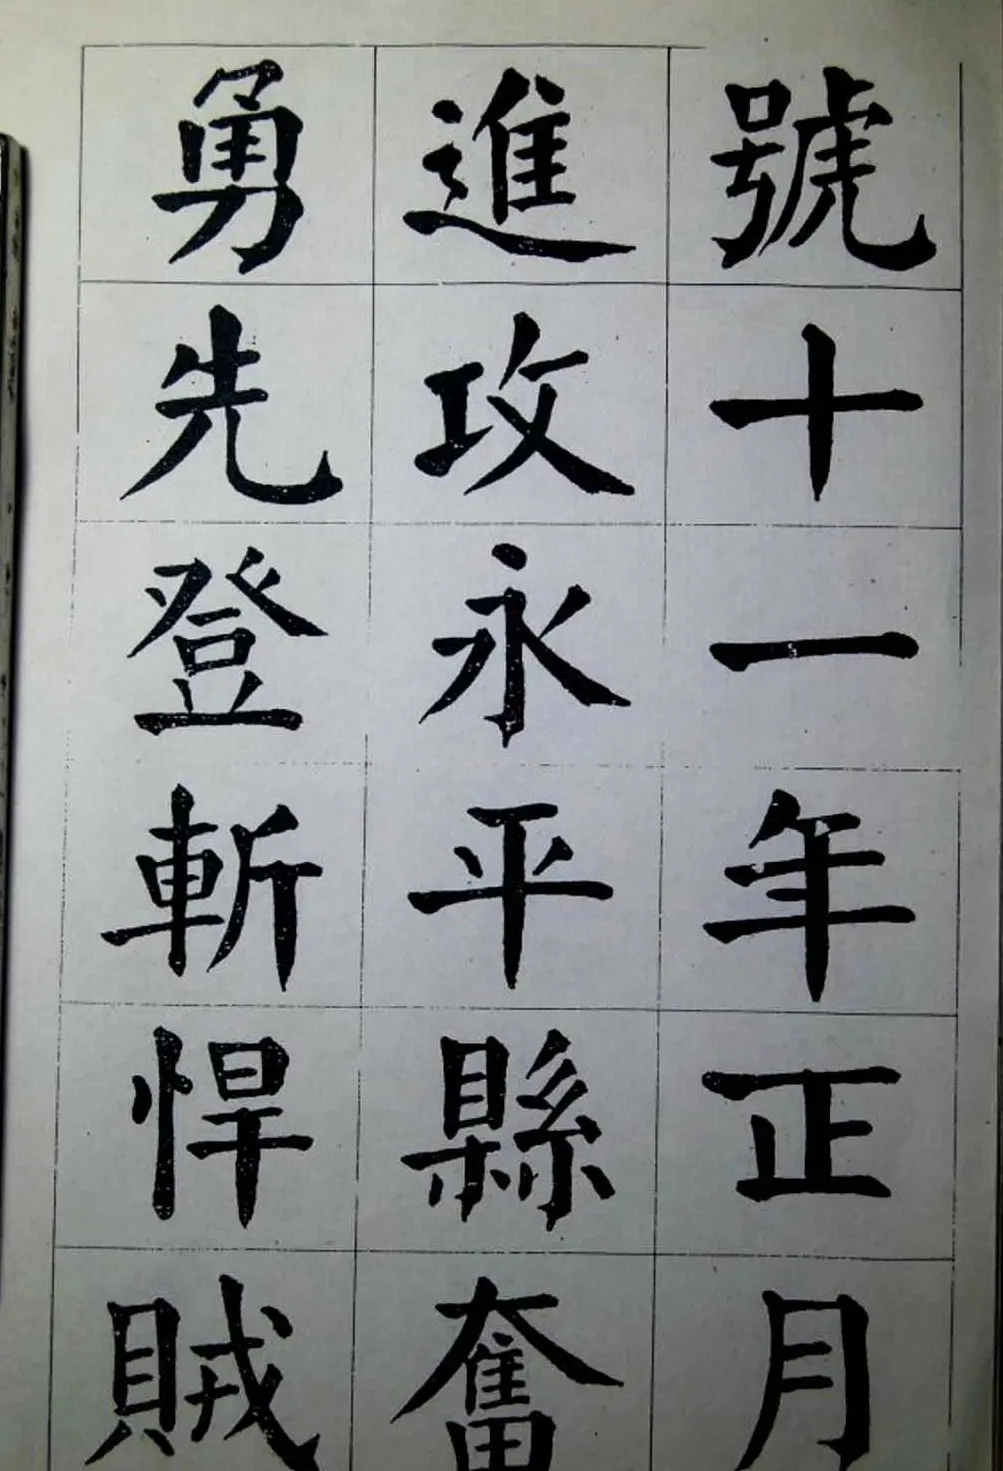 號十一年正月
進攻永平縣奮
勇先登斬悍賊